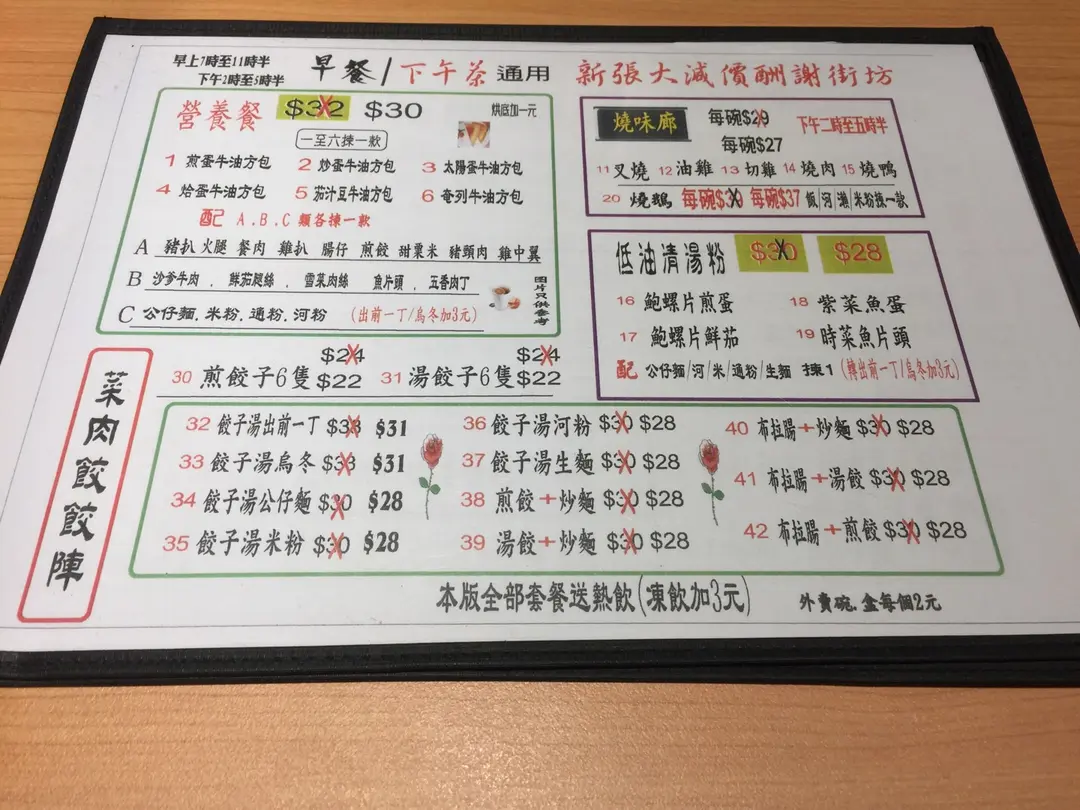 早上7時至11時半
下午2時至5時半
早餐/下午茶 通用
新張大減價酬謝街坊
營養餐 $32 $30
烘底加一元
一至六揀一款
1 煎蛋牛油方包 2 炒蛋牛油方包 3 太陽蛋牛油方包
4 烚蛋牛油方包 5 茄汁豆牛油方包 6 奄列牛油方包
配 A.B.C 類各揀一款
A 豬扒 火腿 餐肉 雞扒 腸仔 煎餃 甜粟米 豬頸肉 雞中翼
B 沙爹牛肉 . 鮮茄腿絲 . 雪菜肉絲 魚片頭 . 五香肉丁
C 公仔麵.米粉.通粉.河粉 (出前一丁/烏冬加3元)
图片只供参考
燒味廊 每碗$29 下午二時至五時半
每碗$27
11 叉燒 12 油雞 13 切雞 14 燒肉 15 燒鴨
20 燒鵝 每碗$39 每碗$37 飯/河/瀨/米粉揀一款
低油清湯粉 $30 $28
16 鮑螺片煎蛋 18 紫菜魚蛋
17 鮑螺片鮮茄 19 時菜魚片頭
配 公仔麵/河/米/通粉/生麵 揀1 (轉出前一丁/烏冬加3元)
菜肉餃餃陣
30 煎餃子6隻 $24 $22 31 湯餃子6隻 $24 $22
32 餃子湯出前一丁 $33 $31
33 餃子湯烏冬 $33 $31
34 餃子湯公仔麵 $30 $28
35 餃子湯米粉 $30 $28
36 餃子湯河粉 $30 $28
37 餃子湯生麵 $30 $28
38 煎餃+炒麵 $30 $28
39 湯餃+炒麵 $30 $28
40 布拉腸+炒麵 $30 $28
41 布拉腸+湯餃 $30 $28
42 布拉腸+煎餃 $30 $28
本版全部套餐送熱飲(凍飲加3元)
外賣碗.盒每個2元